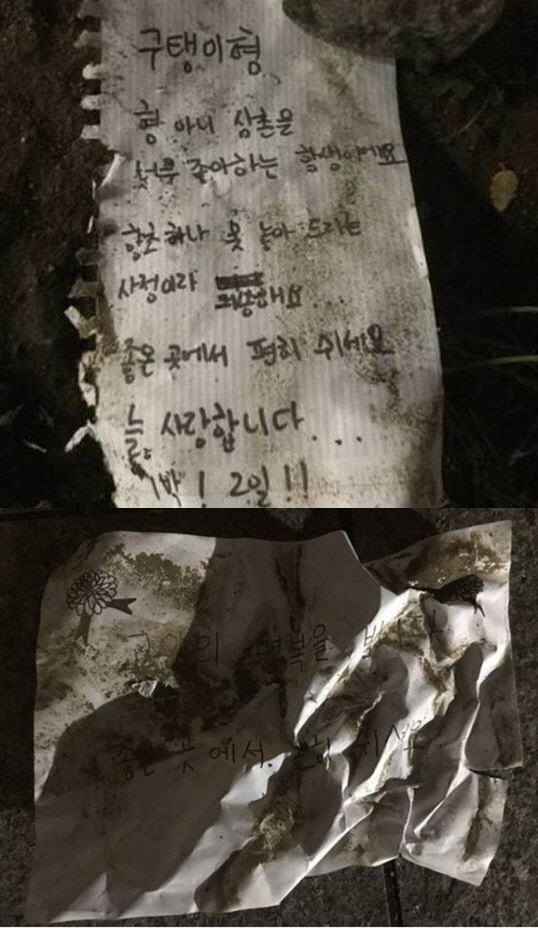 구탱이형
형 아니 삼촌을
너무 좋아하는 학생이에요
향초 하나 못 놓아 드리는
사정이라 죄송해요...
좋은 곳에서 편히 쉬세요
늘, 사랑합니다...
1박! 2일!!
고인의 명복을
좋은 곳에서 쉬세요